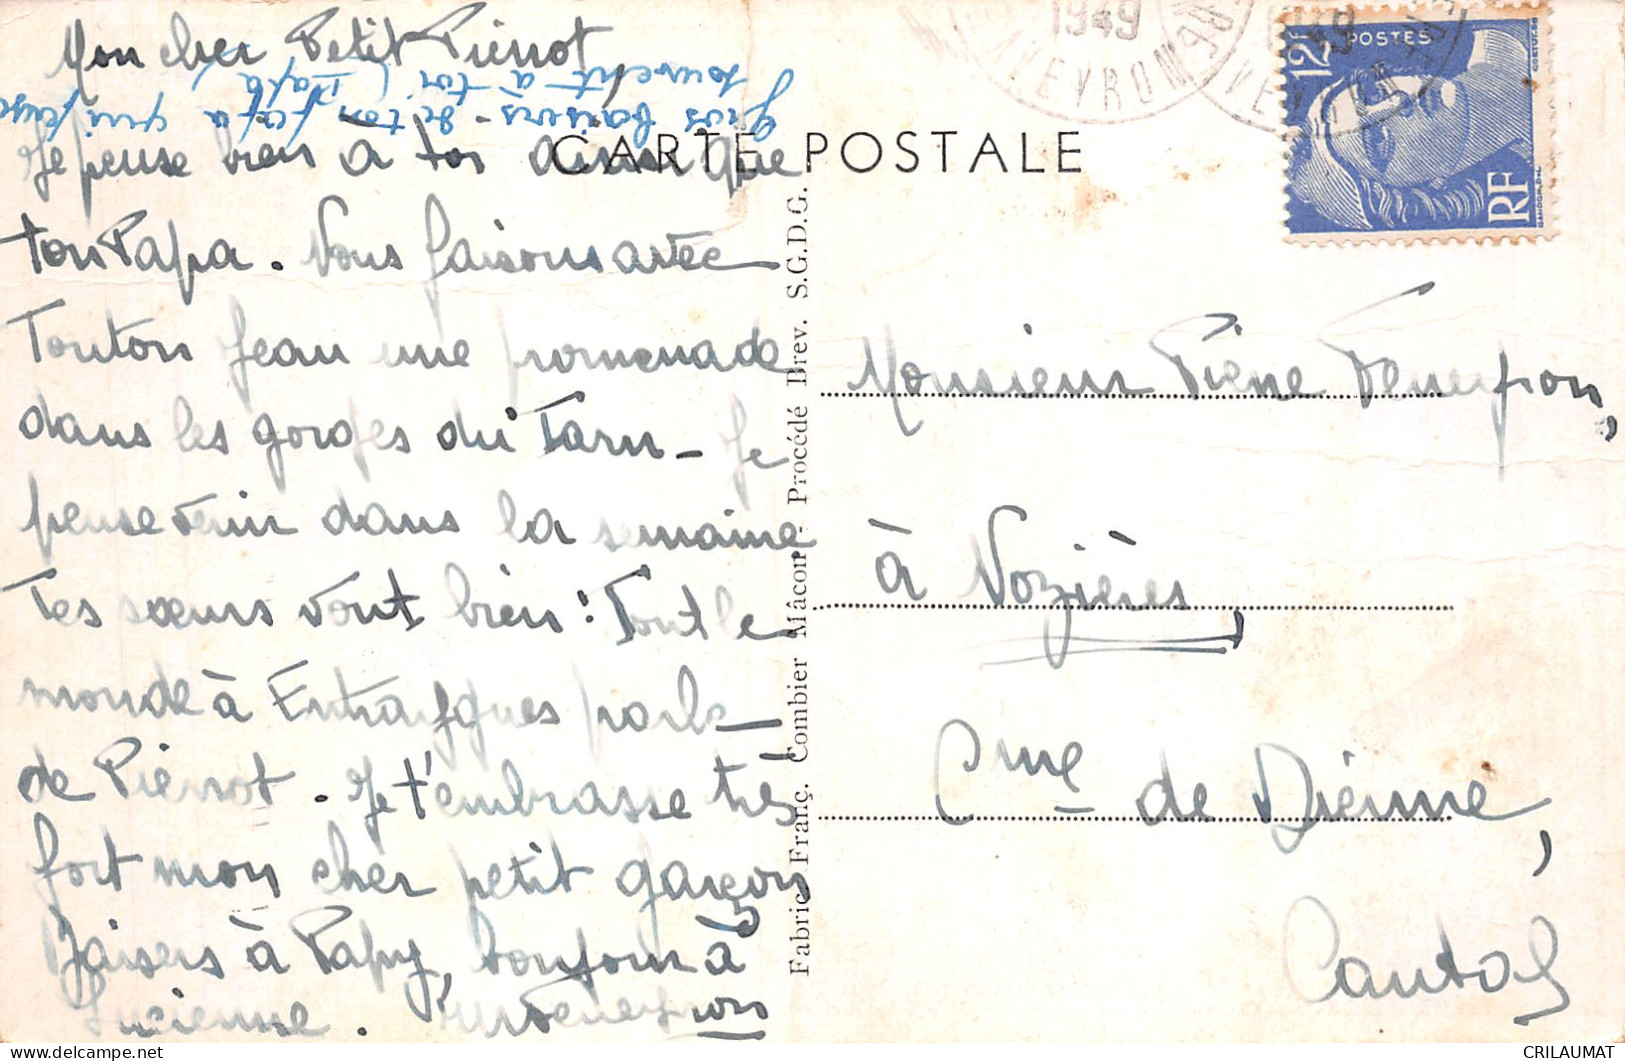 Mon cher Petit Pierrot
Gros baisers de ton papa qui pense
souvent à toi (Papa)
Je pense bien à toi ainsi que
ton Papa. Nous faisons avec
Tonton Jean une promenade
dans les gorges du Tarn _ Je
pense venir dans la semaine
Tes sœurs vont bien : Tout le
monde à Entraygues parle
de Pierrot. Je t'embrasse très
fort mon cher petit garçon
Baisers à Papy, bonjour à
Lucienne.
CARTE POSTALE
Fabric. Franç. Combier Mâcon - Procédé Brev. S.G.D.G.
1949
AVEYRON
12F POSTES
RF
GANDON DEL.
Monsieur Pierre
à Vozières,
Cme de Dienne,
Cantal
CRILAUMAT